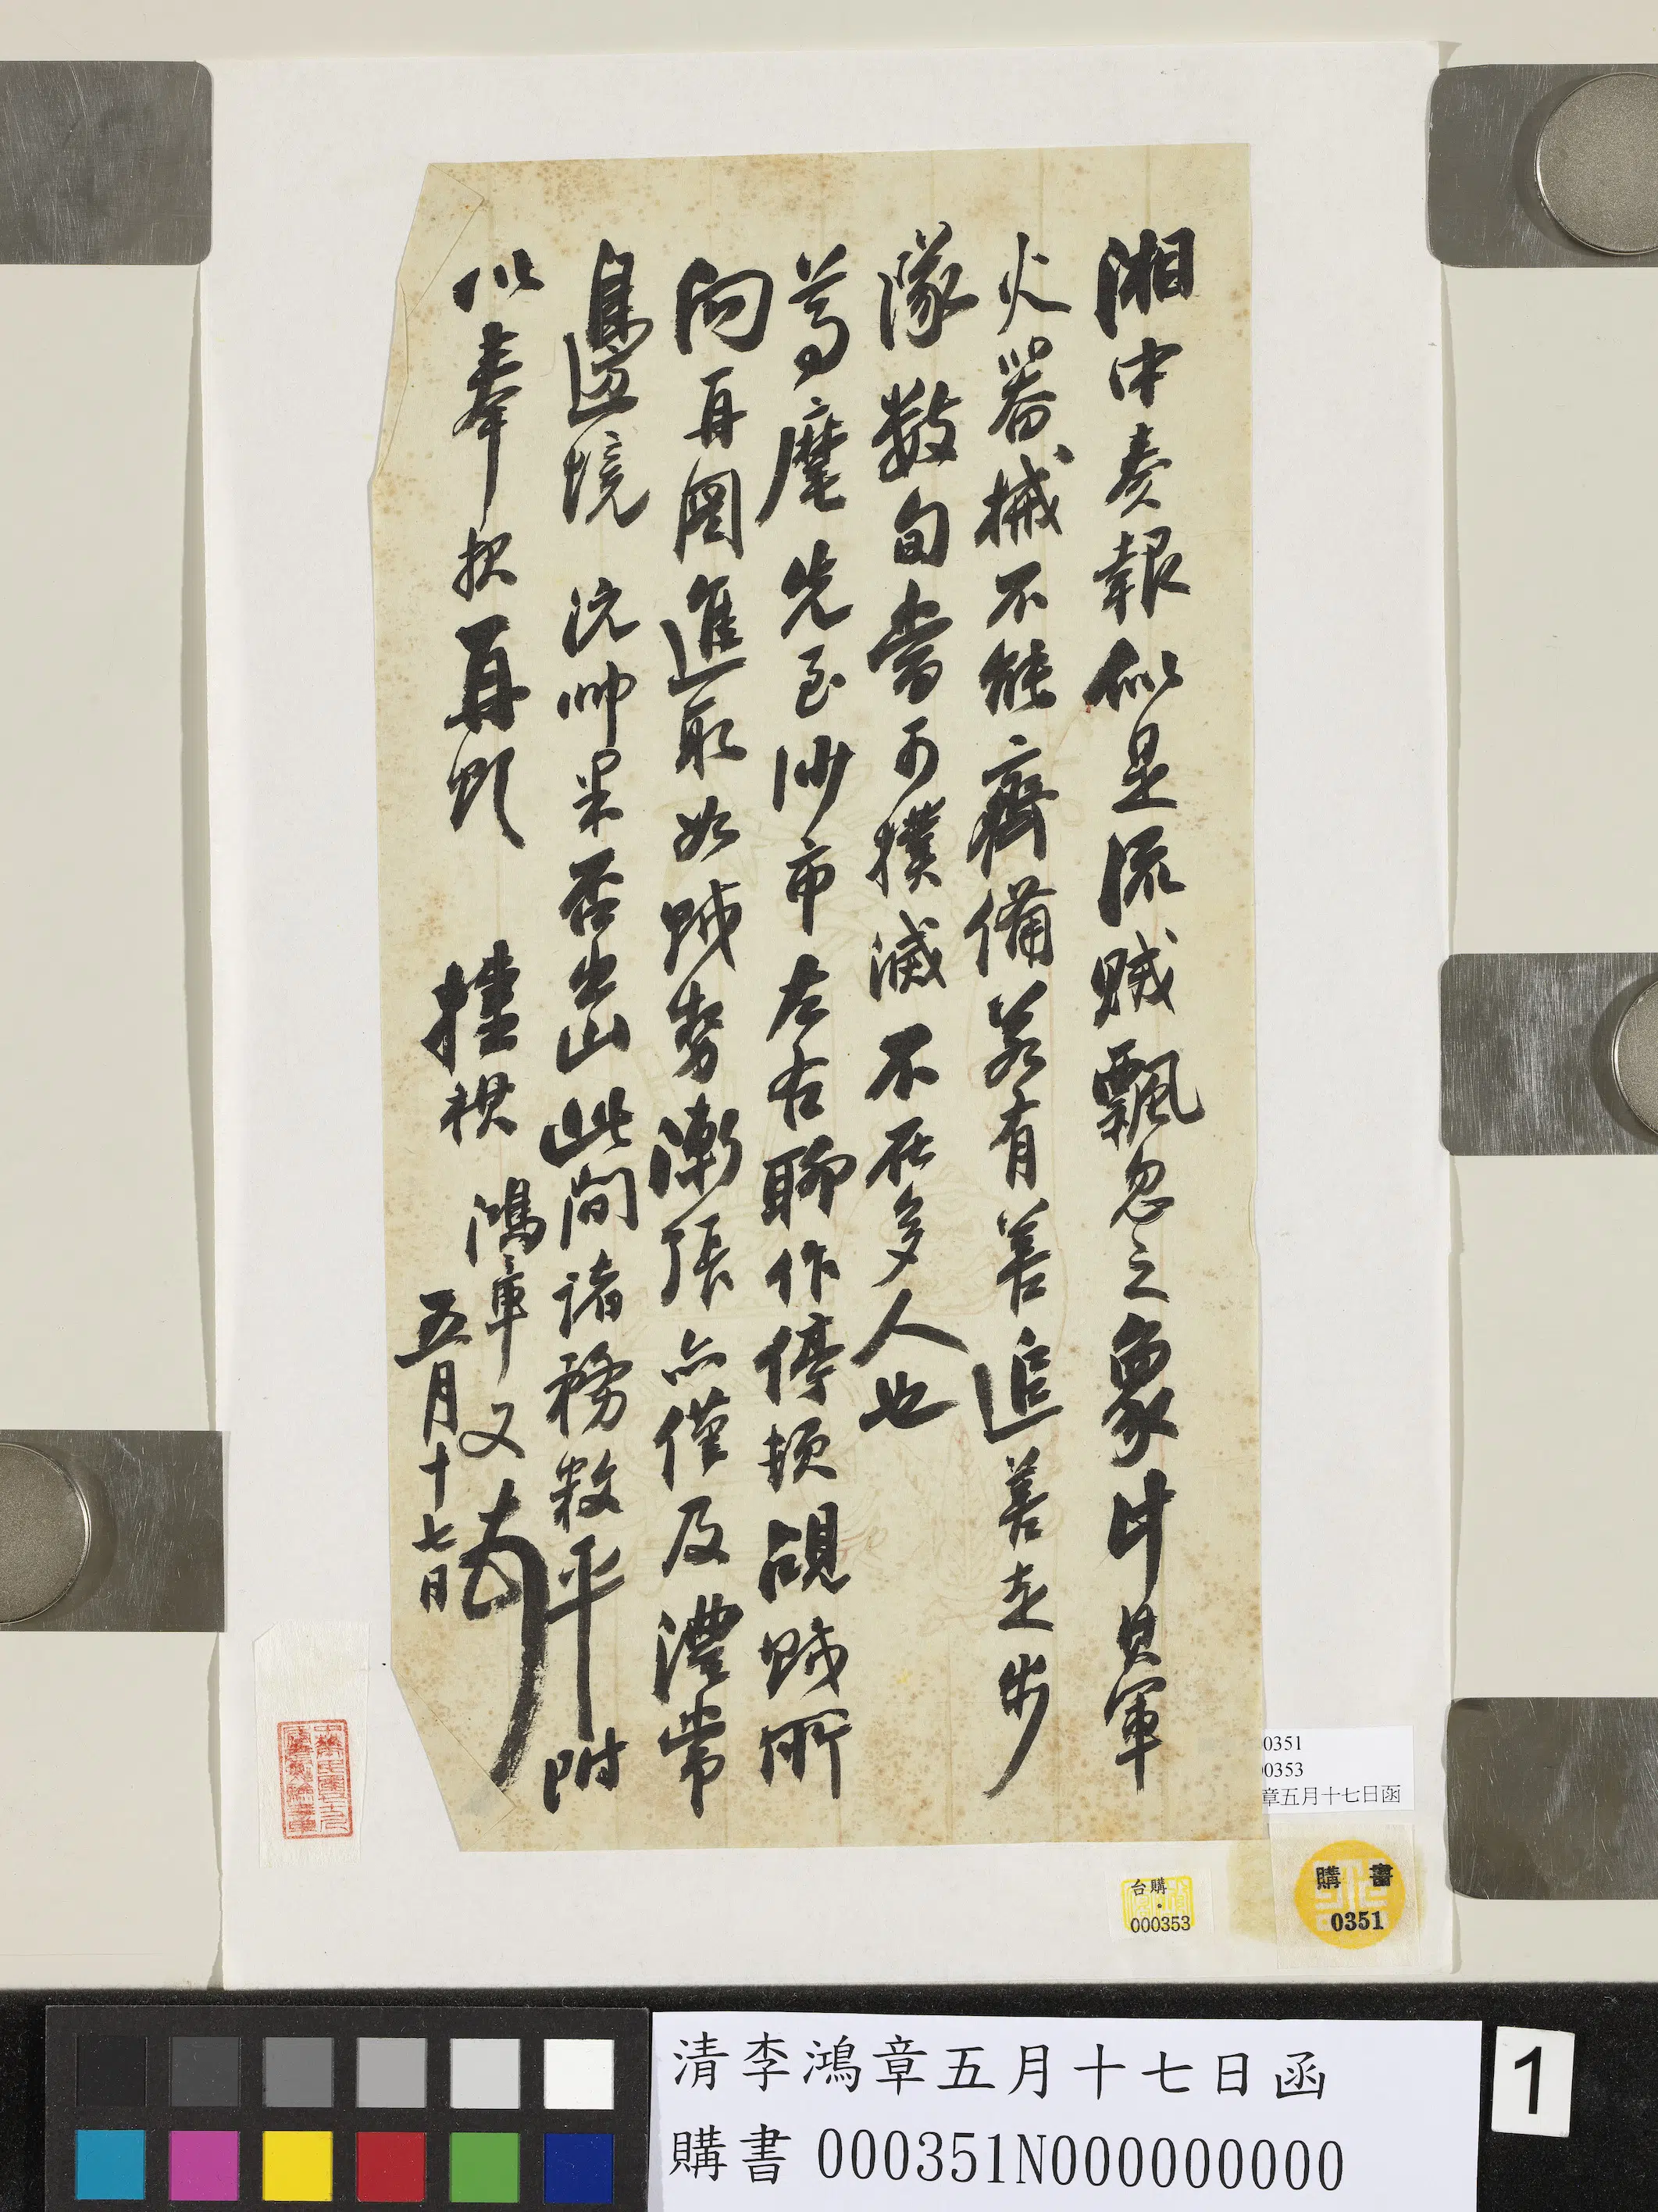 湘中奏報似是流賊飄忽之象此軍
火器械不能齊備若有善追善走步
隊數旬當可撲滅不在多人也
尊麾先至沙市左右聊作停頓覘賊所
向再圖進取如賊勢漸張亦僅及澧常
邊境 沅帥果否出山此間諸務敉平附
以奉
再頌 摧祺 鴻章又
五月十七日
0351
00353
章五月十七日函
台購
000353
購書
0351
清李鴻章五月十七日函
購書 000351N000000000
1